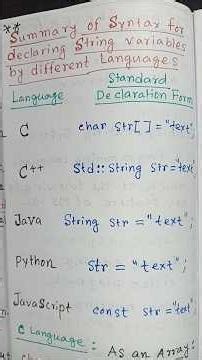 ** Summary of Syntax for
declaring String variables
by different Languages
Language Standard Declaration Form
C char str[] = "text";
C++ Std::String Str="text
Java String Str = "text";
Python Str = "text";
JavaScript const Str ="text"
C Language : As an Array: